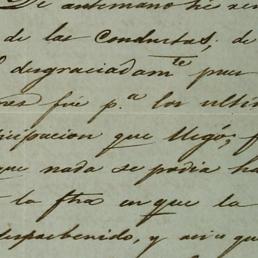 De antemano he
de las conductas; de
desgraciadam.te pues
fué p.a los ulti
cipacion que llegó, f
que nada se podia ha
la fha en que la
desapercibido, y así qu